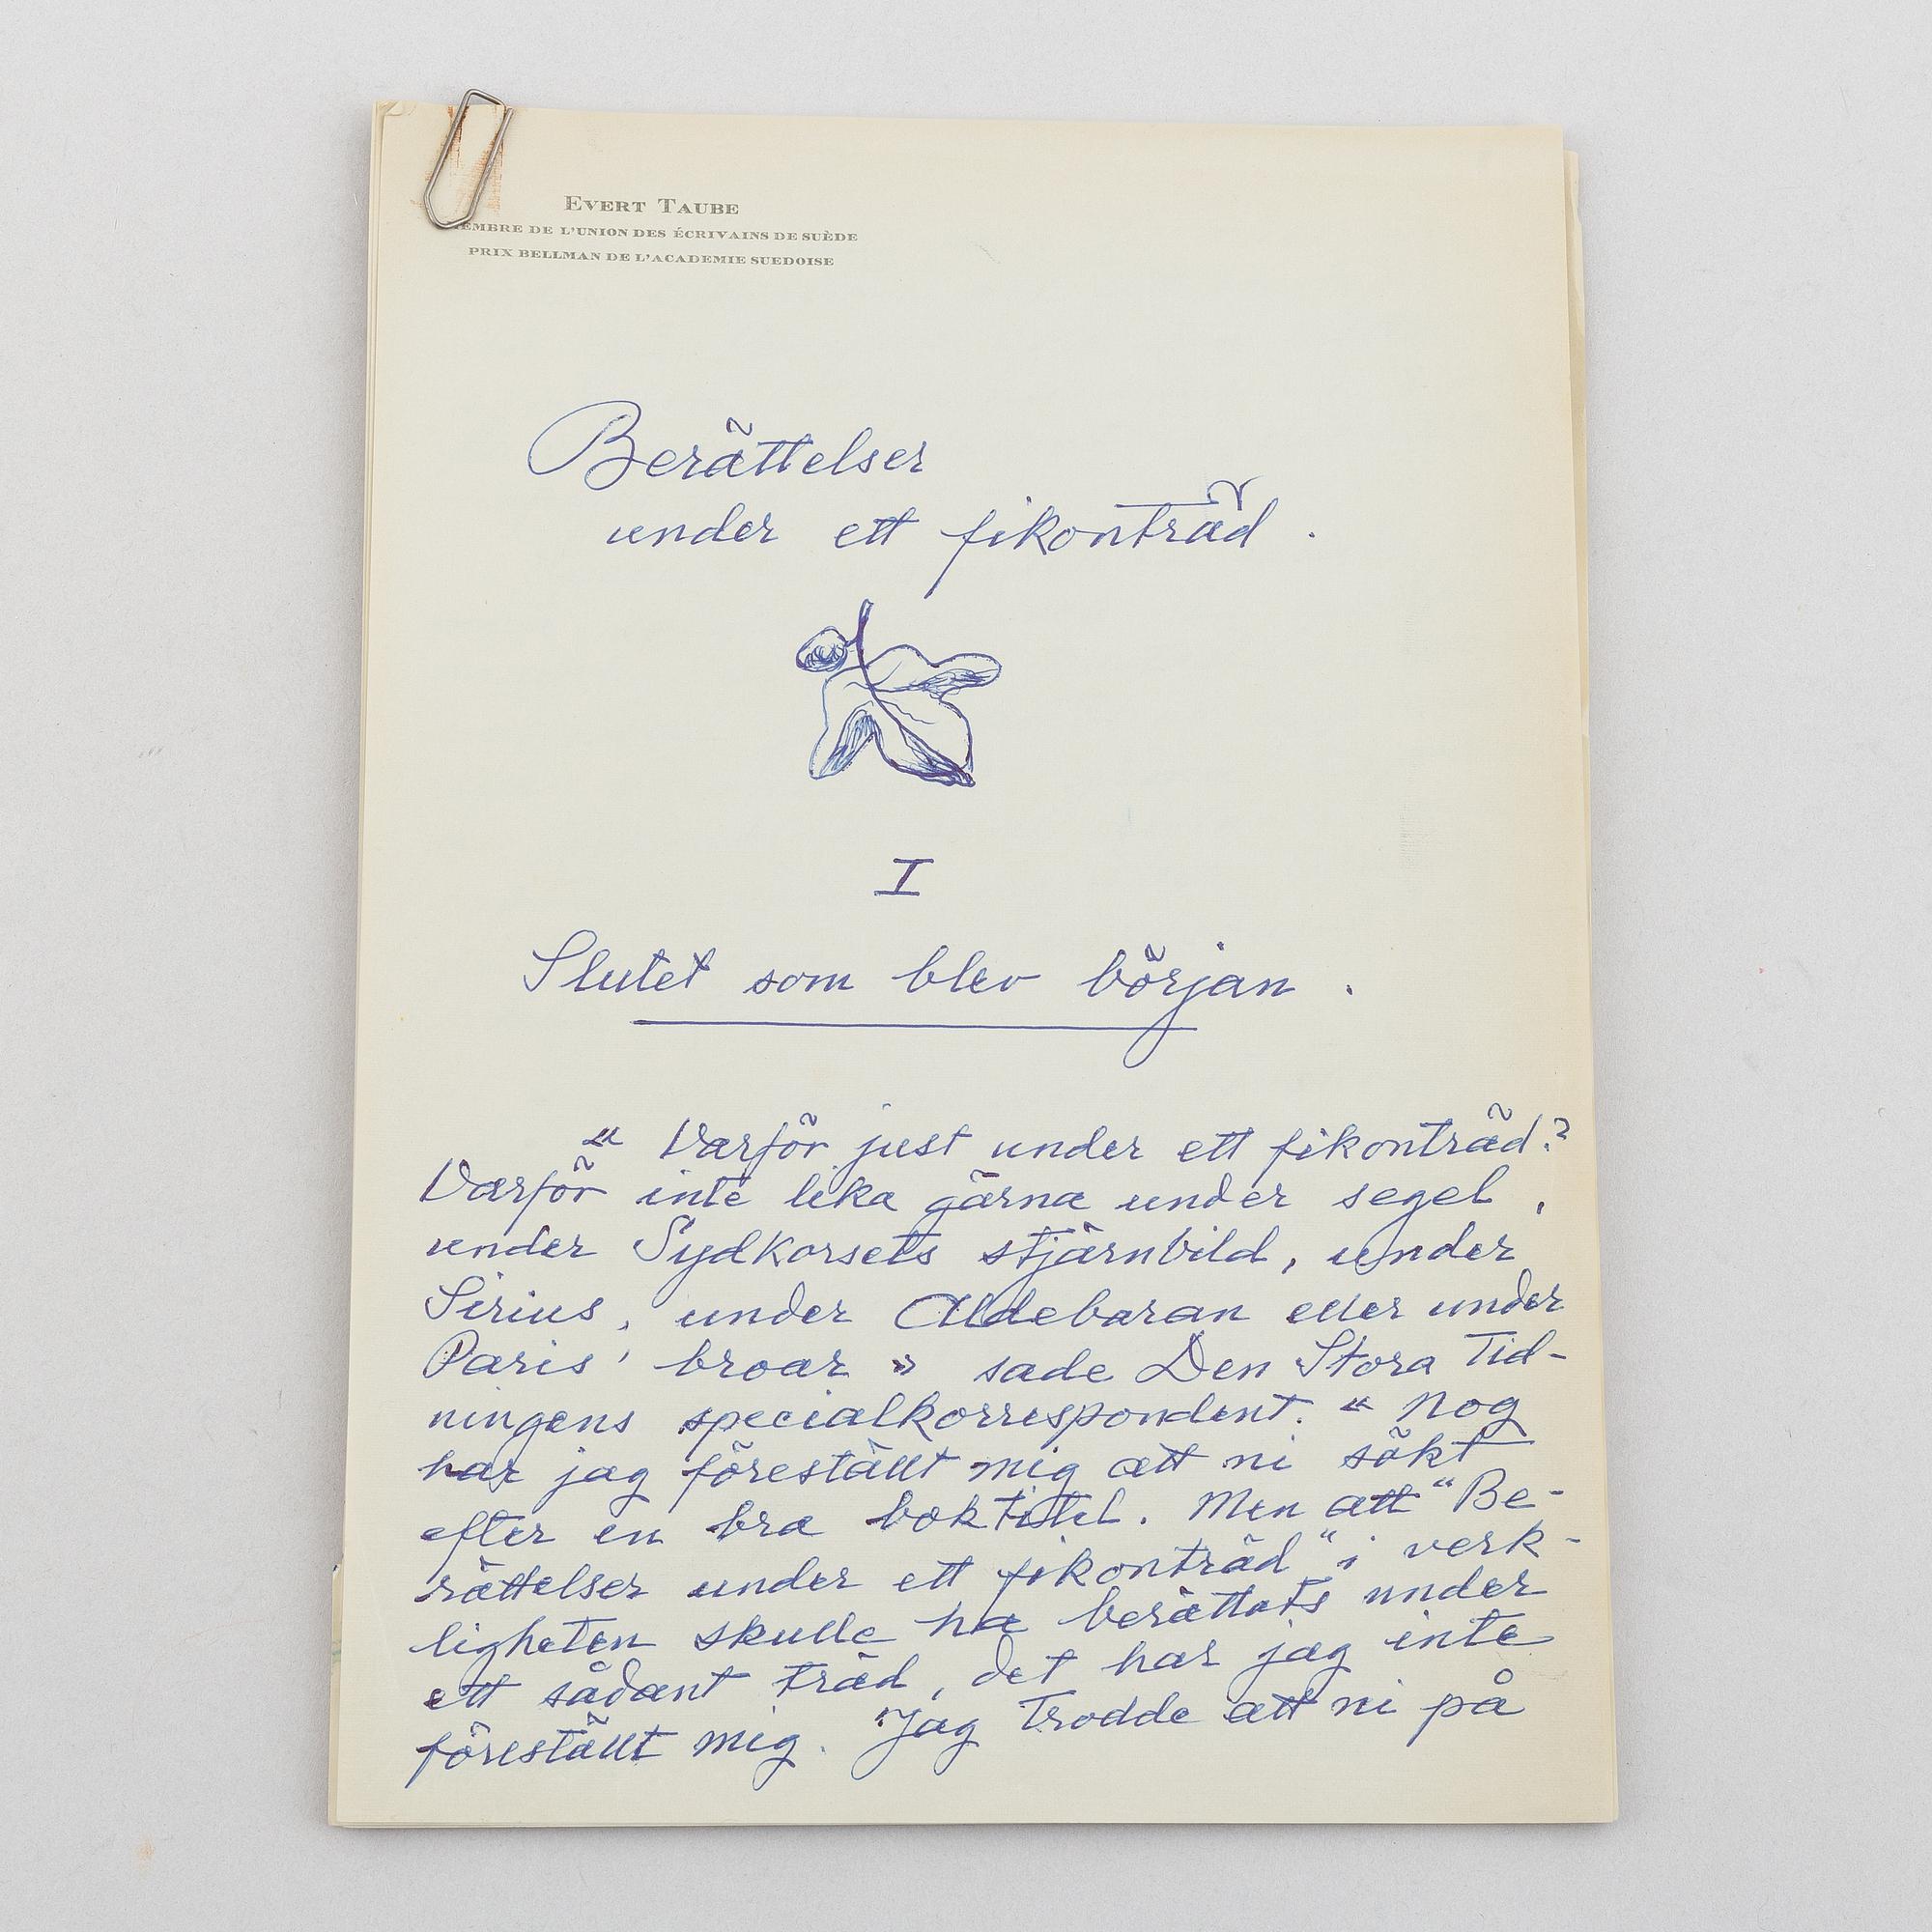 EVERT TAUBE
MEMBRE DE L'UNION DES ÉCRIVAINS DE SUÈDE
PRIX BELLMAN DE L'ACADEMIE SUEDOISE
Berättelser
under ett fikonträd.
I
Slutet som blev början.
« Varför just under ett fikonträd?
Varför inte lika gärna under segel,
under Sydkorsets stjärnbild, under
Sirius, under Aldebaran eller under
Paris' broar » sade Den Stora Tid-
ningens specialkorrespondent. « Nog
har jag föreställt mig att ni sökt
efter en bra boktitel. Men att "Be-
rättelser under ett fikonträd" i verk-
ligheten skulle ha berättats under
ett sådant träd, det har jag inte
föreställt mig. Jag trodde att ni på